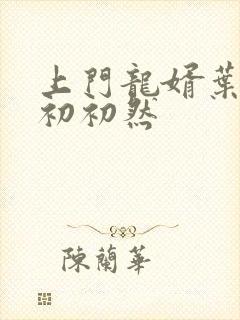 上門龍婿葉
初初然
陳蘭華